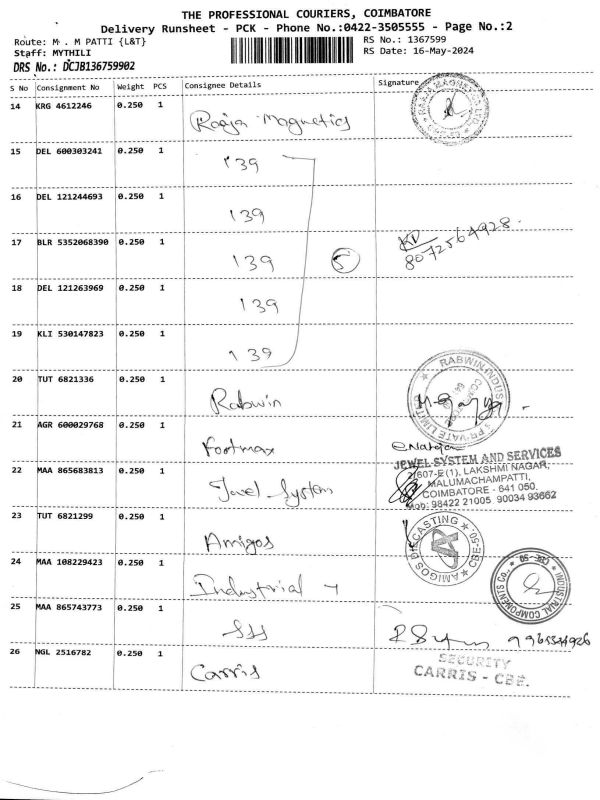 THE PROFESSIONAL COURIERS, COIMBATORE
Delivery Runsheet - PCK - Phone No.:0422-3505555 - Page No.:2
Route: M . M PATTI {L&T} RS No.: 1367599
Staff: MYTHILI RS Date: 16-May-2024
DRS No.: DCJB136759902
S No Consignment No Weight PCS Consignee Details Signature
14 KRG 4612246 0.250 1 Raaja Magnetics
15 DEL 600303241 0.250 1 139
16 DEL 121244693 0.250 1 139
17 BLR 5352068390 0.250 1 139 5 8072564928
18 DEL 121263969 0.250 1 139
19 KLI 530147823 0.250 1 139
20 TUT 6821336 0.250 1 Rabwin RABWIN INDUS PRIVATE LIMITED
21 AGR 600029768 0.250 1 Footmax
22 MAA 865683813 0.250 1 Jewel System JEWEL SYSTEM AND SERVICES
2/607-E(1), LAKSHMI NAGAR,
MALUMACHAMPATTI,
COIMBATORE - 641 050.
Mob: 98422 21005 90034 93662
23 TUT 6821299 0.250 1 Amigos AMIGOS DIECASTING CBE-50
24 MAA 108229423 0.250 1 Industrial INDUSTRIAL COMPONENTS CO., CBE-50
25 MAA 865743773 0.250 1 SSS
26 NGL 2516782 0.250 1 Carris SECURITY
CARRIS - CBE.